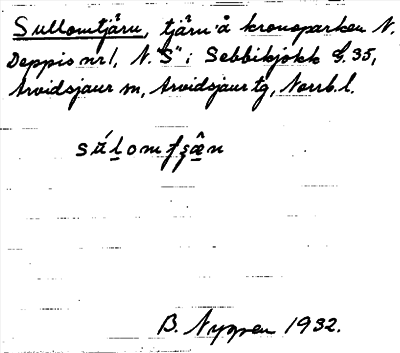 Sullomtjärn, tjärn å kronoparken N.
Deppis nr 1, N. "S" i Sebbikjokk S. 35,
Arvidsjaur sn, Arvidsjaur tg, Norrb. l.
B. Nyman 1932.